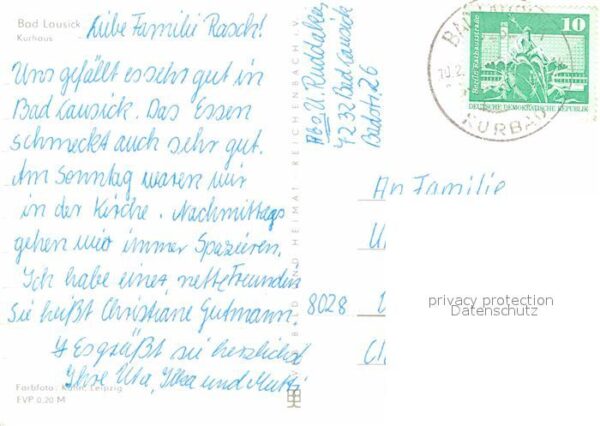 Bad Lausick
Kurhaus
Liebe Familie Rasch!
Uns gefällt es sehr gut in
Bad Lausick. Das Essen
schmeckt auch sehr gut.
Am Sonntag waren wir
in der Kirche. Nachmittags
gehen wir immer Spazieren.
Ich habe eine nette Freundin
Sie heißt Christiane Gutmann.
Es grüßt sie herzlichst
Ihre Uta, und Mutti
Farbfoto: Kühn, Leipzig
EVP 0,20 M
BILD UND HEIMAT REICHENBACH i. V.
Abs. U. Ruddakies
7232 Bad Lausick
Badstr. 26
10
DEUTSCHE DEMOKRATISCHE REPUBLIK
BAD LAUSICK
KURBAD
An Familie
8028
privacy protection
Datenschutz